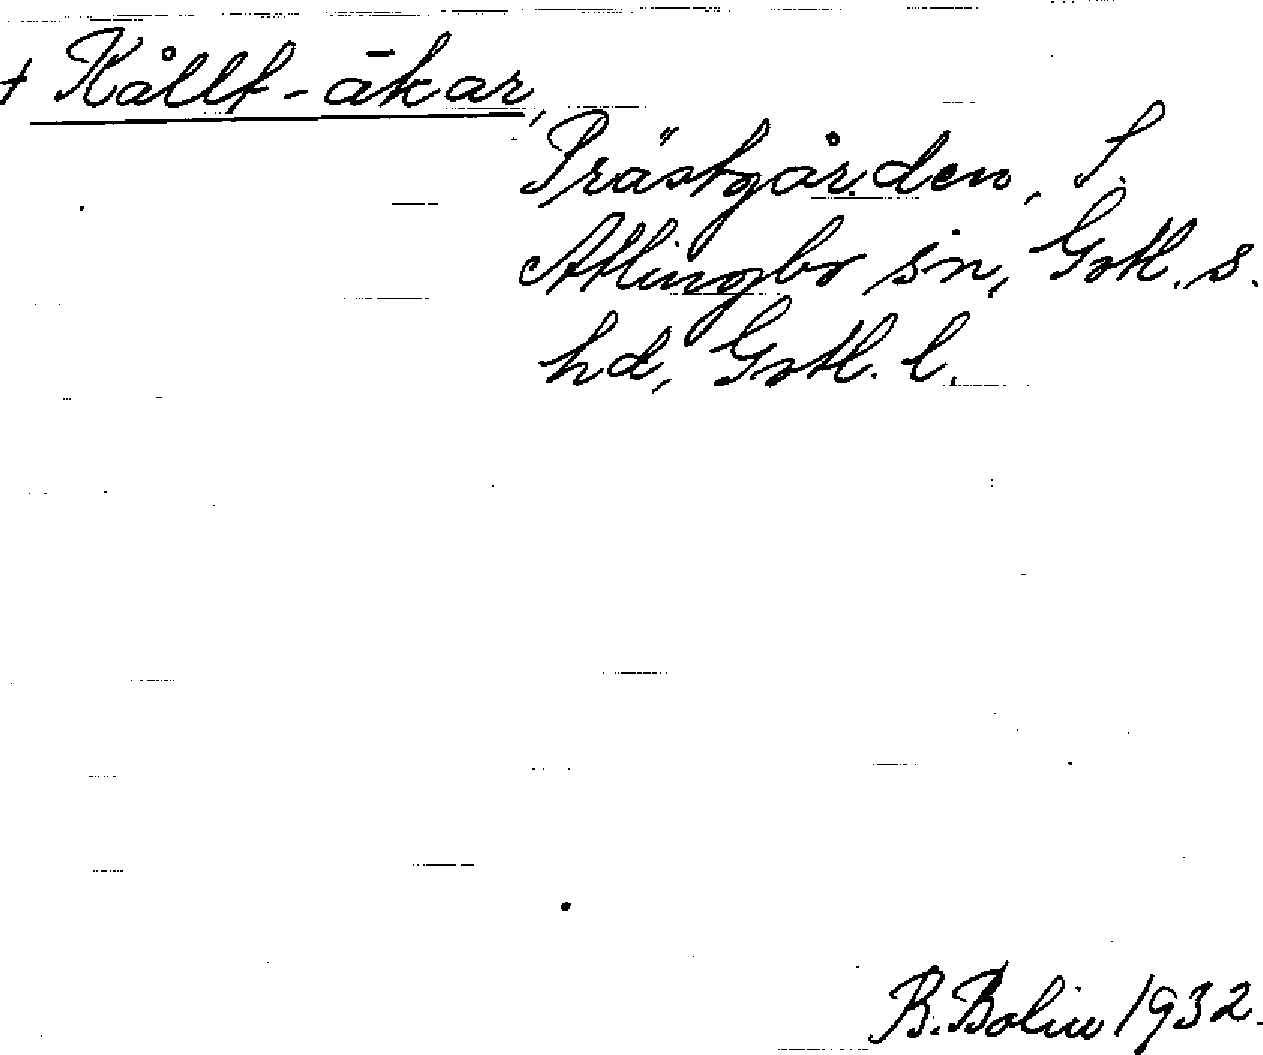 + Kållt-ākar,
Prästgården, S.
Atlingbo sn, Gotl. s.
hd, Gotl. l.
B. Bolin 1932.